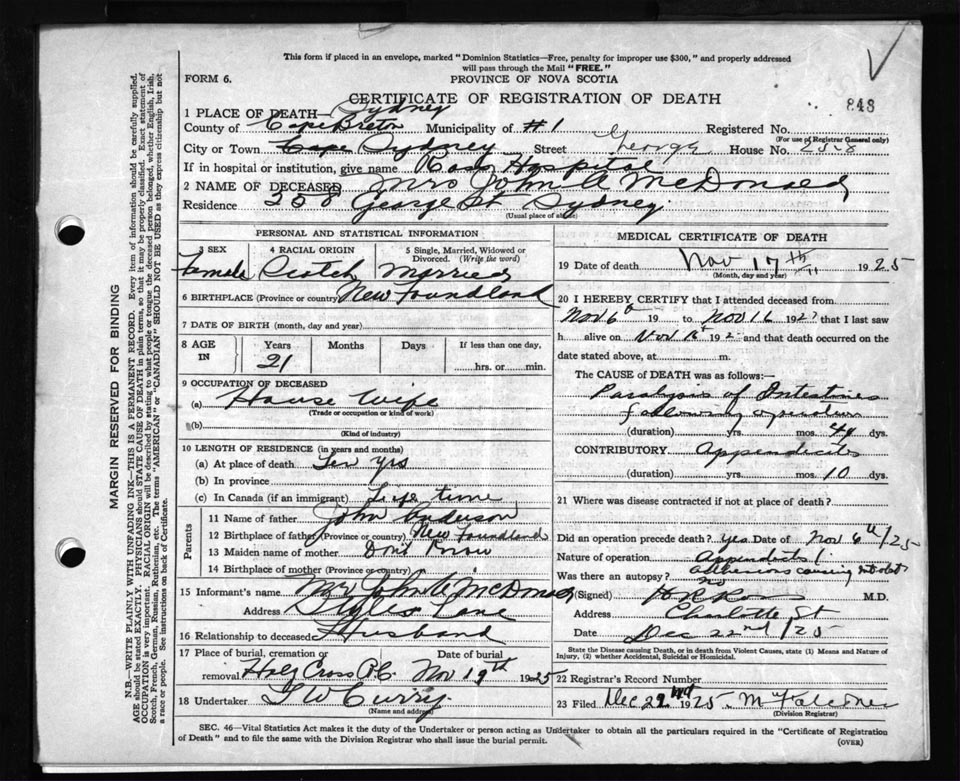 This form if placed in an envelope, marked "Dominion Statistics—Free, penalty for improper use $300," and properly addressed
will pass through the Mail "FREE."
FORM 6.
PROVINCE OF NOVA SCOTIA
CERTIFICATE OF REGISTRATION OF DEATH
848
1 PLACE OF DEATH— Sydney
County of Cape Breton Municipality of #1 Registered No.
(For use of Registrar General only)
City or Town Cape Sydney Street George House No. 258
If in hospital or institution, give name Ross Hospital
2 NAME OF DECEASED Mrs John A McDonald
Residence 258 George St Sydney
(Usual place of abode)
PERSONAL AND STATISTICAL INFORMATION
3 SEX 4 RACIAL ORIGIN 5 Single, Married, Widowed or Divorced. (Write the word)
Female Scotch Married
6 BIRTHPLACE (Province or country) New Foundland
7 DATE OF BIRTH (month, day and year)
8 AGE IN Years Months Days If less than one day,
21 hrs. or min.
9 OCCUPATION OF DECEASED
(a) House Wife
(Trade or occupation or kind of work)
(b)
(Kind of industry)
10 LENGTH OF RESIDENCE (in years and months)
(a) At place of death Ten yrs
(b) In province
(c) In Canada (if an immigrant) Life time
Parents
11 Name of father John Anderson
12 Birthplace of father (Province or country) New Foundland
13 Maiden name of mother Don't Know
14 Birthplace of mother (Province or country)
15 Informant's name Mr John A McDonald
Address Styles Lane
16 Relationship to deceased Husband
17 Place of burial, cremation or removal Date of burial
Holy Cross P.C. Nov 19th 1925
18 Undertaker T W Curry
(Name and address)
MEDICAL CERTIFICATE OF DEATH
19 Date of death Nov 17th 1925
(Month, day and year)
20 I HEREBY CERTIFY that I attended deceased from
Nov 6th 19 to Nov 16 192 that I last saw
h alive on Nov 16th 192 and that death occurred on the
date stated above, at m.
The CAUSE of DEATH was as follows:—
Paralysis of Intestines
following
(duration) yrs. mos. dys.
CONTRIBUTORY Appendicitis
(duration) yrs. mos. 10 dys.
21 Where was disease contracted if not at place of death?
Did an operation precede death? yes Date of Nov 6th/25
Nature of operation Appendicitis
adhesions causing
Was there an autopsy? no
(Signed) Ross M.D.
Address Charlotte St
Date Dec 22nd /25
State the Disease causing Death, or in death from Violent Causes, state (1) Means and Nature of
Injury, (2) whether Accidental, Suicidal or Homicidal.
22 Registrar's Record Number
23 Filed Dec 22nd 1925
(Division Registrar)
SEC. 46—Vital Statistics Act makes it the duty of the Undertaker or person acting as Undertaker to obtain all the particulars required in the "Certificate of Registration
of Death" and to file the same with the Division Registrar who shall issue the burial permit.
(OVER)
MARGIN RESERVED FOR BINDING
N.B.—WRITE PLAINLY WITH UNFADING INK—THIS IS A PERMANENT RECORD. Every item of information should be carefully supplied.
AGE should be stated EXACTLY. PHYSICIANS should STATE CAUSE OF DEATH in plain terms, so that it may be properly classified. Exact statement of
OCCUPATION is very important. RACIAL ORIGIN will be described by stating to what people or tongue the deceased person belonged, whether English, Irish,
Scotch, French, German, Russian, Ruthenian, etc. The terms "AMERICAN" or "CANADIAN" SHOULD NOT BE USED as they express citizenship but not
a race or people. See instructions on back of Certificate.